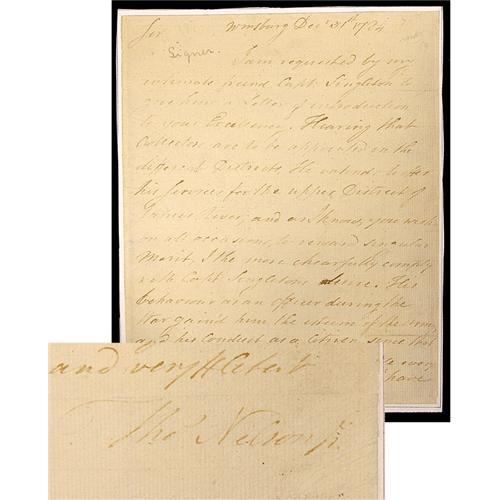 Sir Wmsburg Decr 31st 1784
Signer.
I am requested by my
intimate friend Capt. Singleton to
give him a Letter of introduction
to your Excellency. Hearing that
Collectors are to be appointed in the
different Districts, He intends to offer
his Services for the upper District of
James River; and as I know, you wish
on all occasions, to reward singular
Merit, I the more chearfully comply
with Capt Singletons desire. His
behaviour as an officer during the
War gain'd him the esteem of the army
and his Conduct as a Citizen since that
have
and very Hble Servt
Thos Nelson Jr.